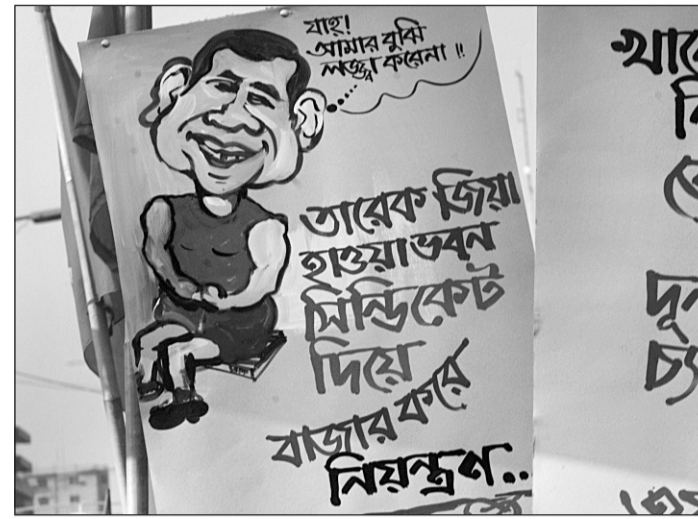 যাহ্!
আমার বুঝি
লজ্জা করেনা !!
তারেক জিয়া
হাওয়া ভবন
সিন্ডিকেট
দিয়ে
বাজার করে
নিয়ন্ত্রণ..